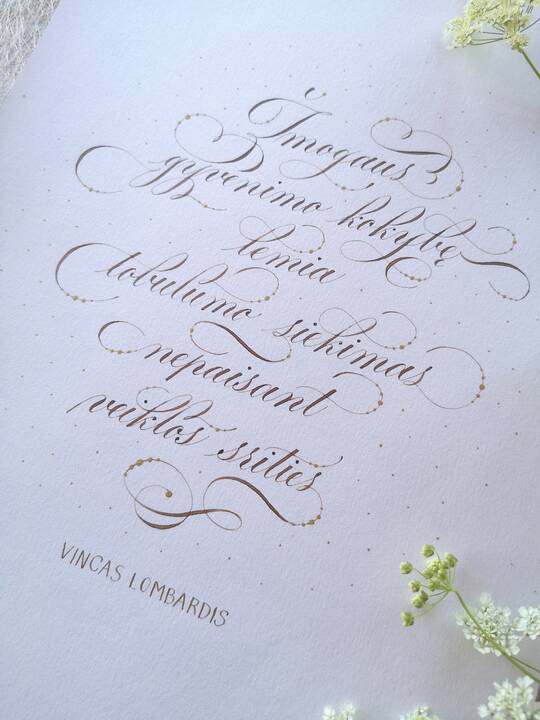 Žmogaus
gyvenimo kokybę
lemia
tobulumo siekimas
nepaisant
veiklos srities
VINCAS LOMBARDIS